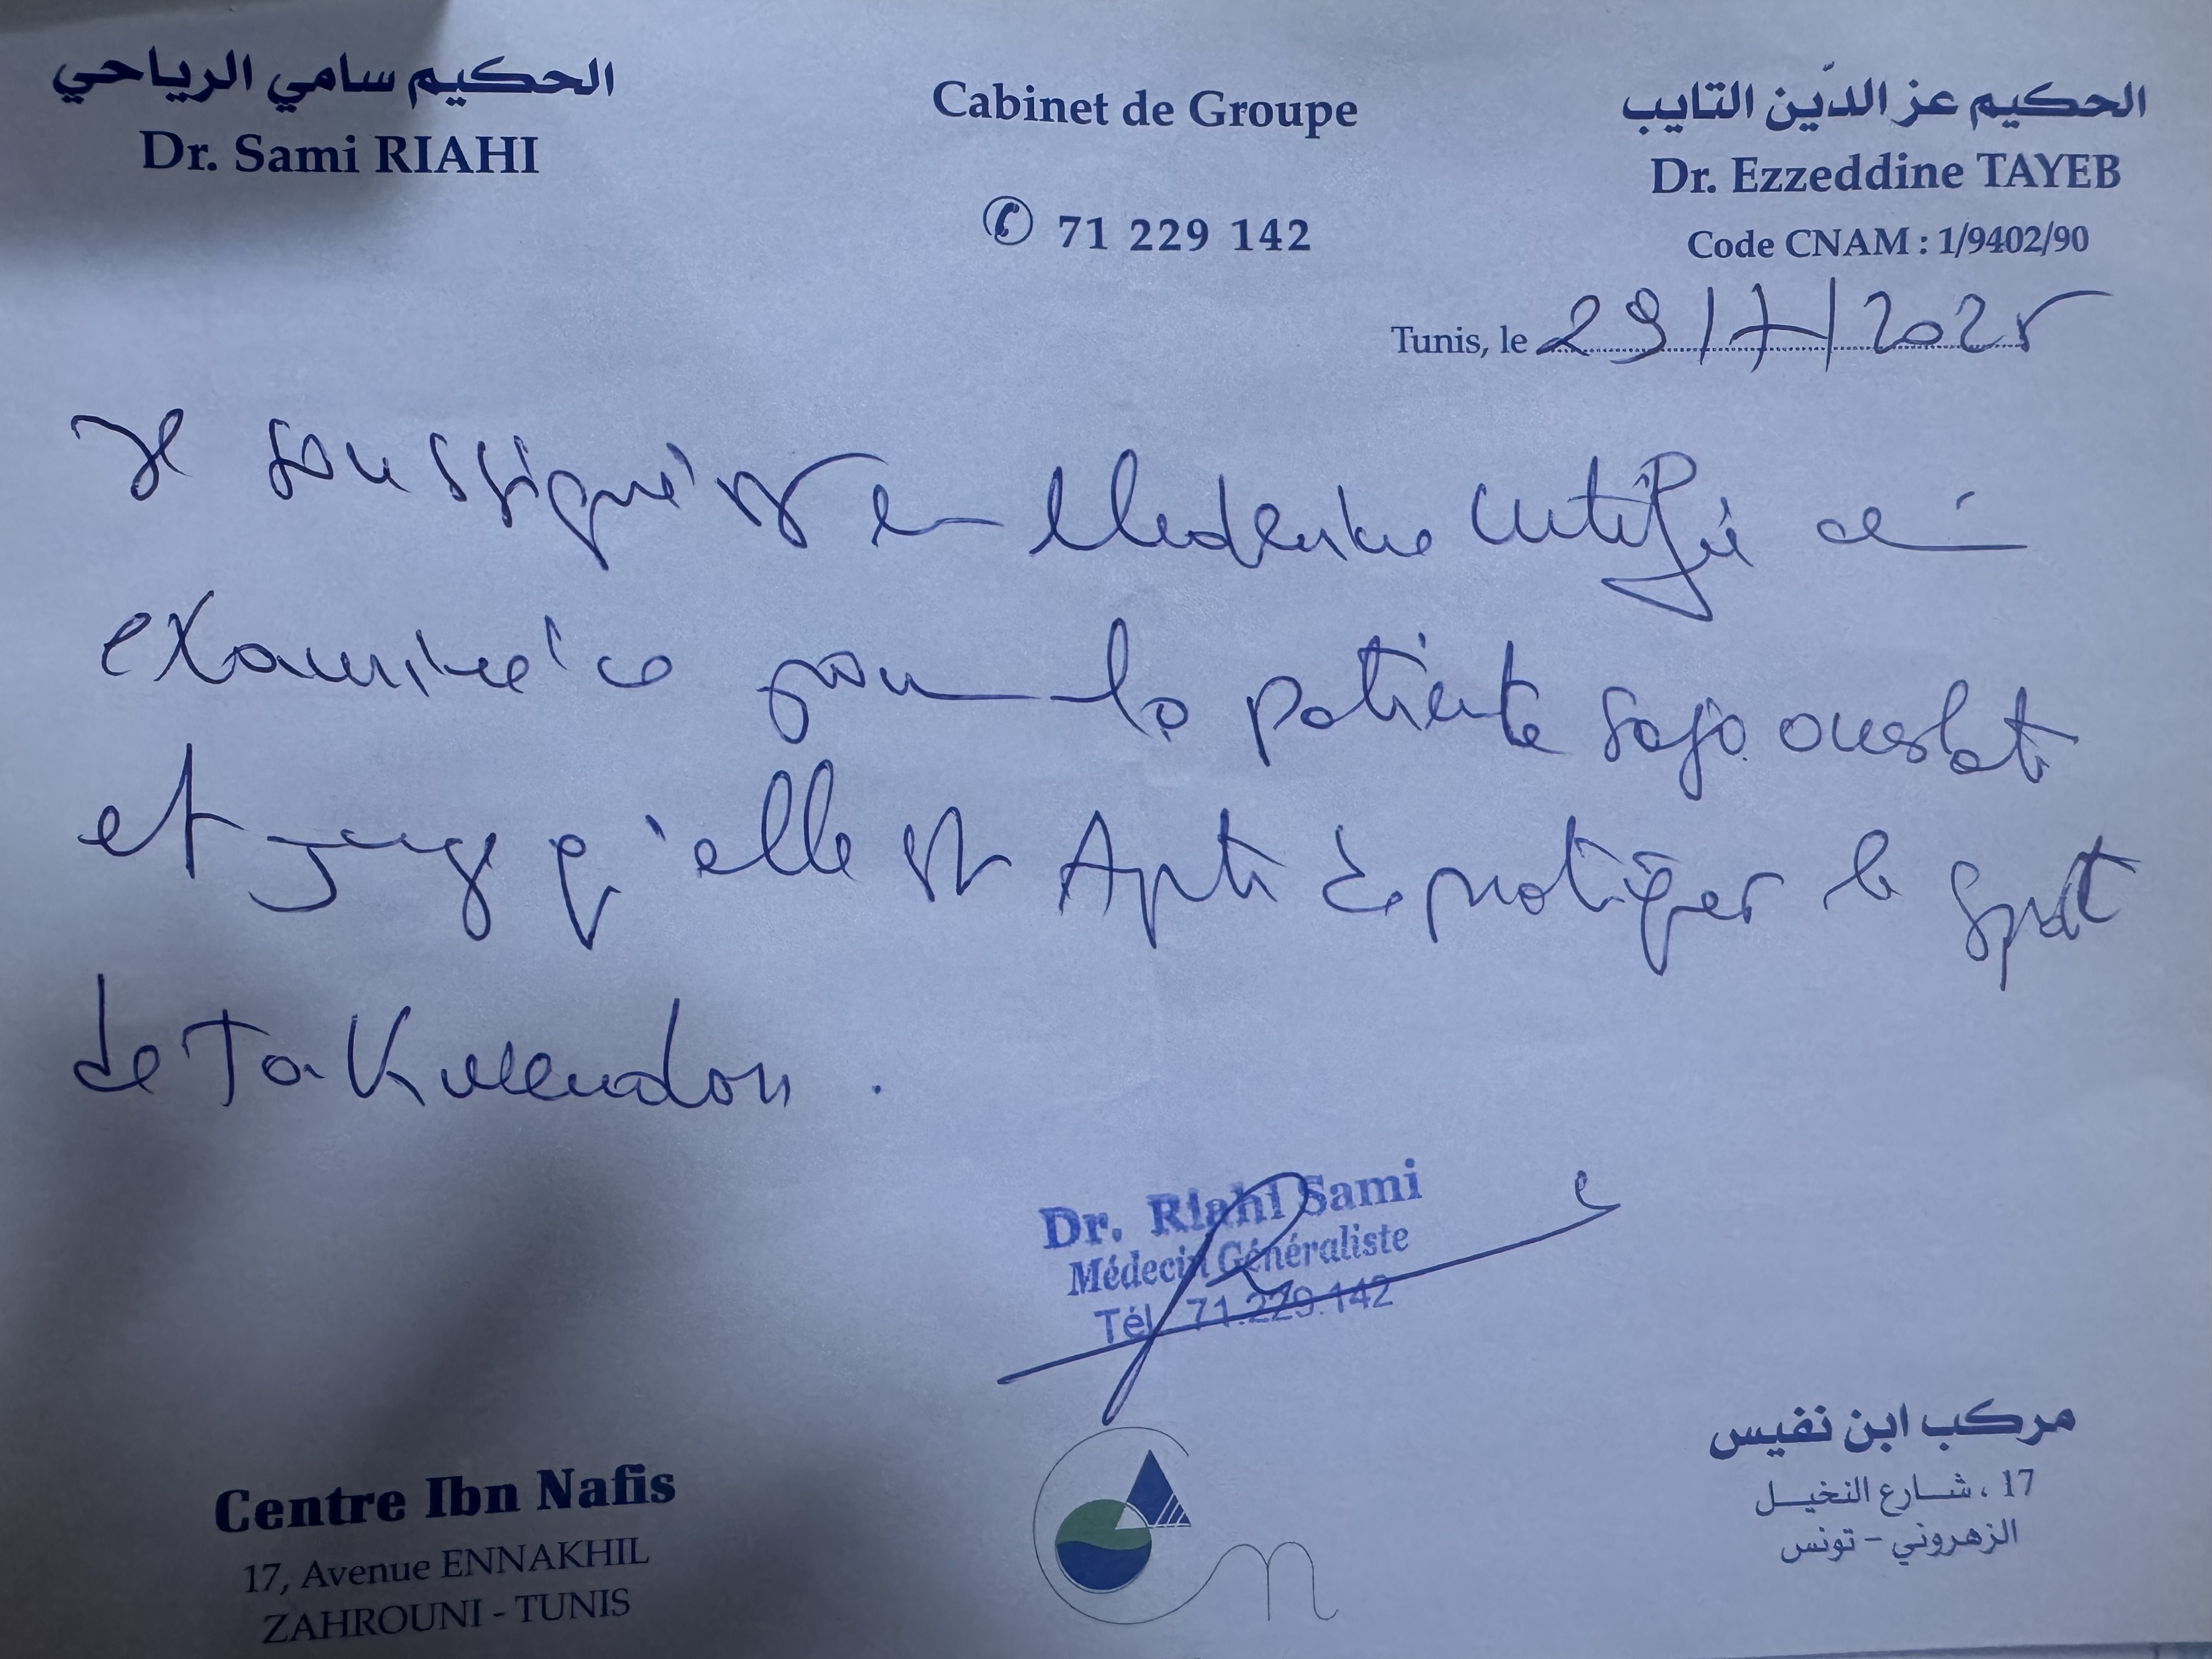 الحكيم سامي الرياحي
Dr. Sami RIAHI
Cabinet de Groupe
71 229 142
الحكيم عز الدّين التايب
Dr. Ezzeddine TAYEB
Code CNAM : 1/9402/90
Tunis, le 29/7/2025
Je soussigné Dr en Medecine certifie
examiné ce jour la patiente Saja Oueslati
et juge qu'elle est Apte à pratiquer le sport
de Takwendou .
Dr. Riahi Sami
Médecin Généraliste
Tél. 71.229.142
Centre Ibn Nafis
17, Avenue ENNAKHIL
ZAHROUNI - TUNIS
مركب ابن نفيس
17 ، شارع النخيل
الزهروني - تونس